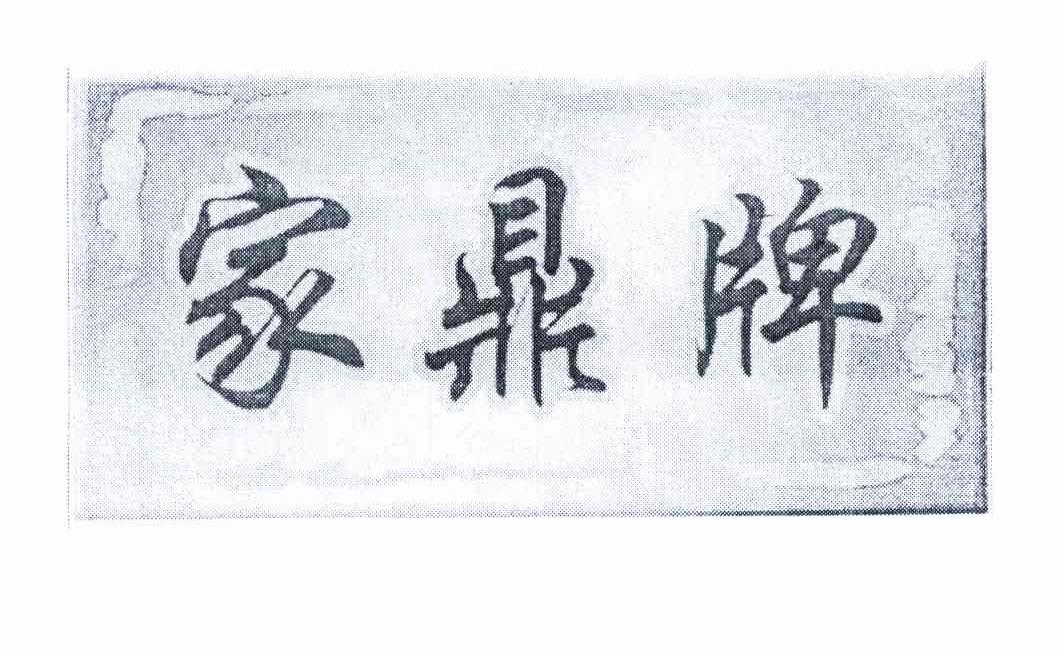 家鼎牌